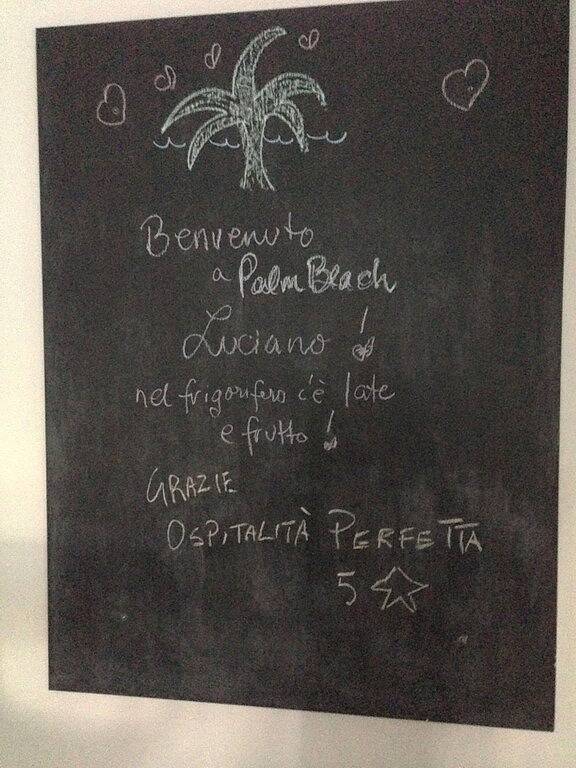 Benvenuto
a Palm Beach
Luciano!
nel frigorifero c'è late
e frutto!
GRAZIE
OSPITALITÀ PERFETTA
5